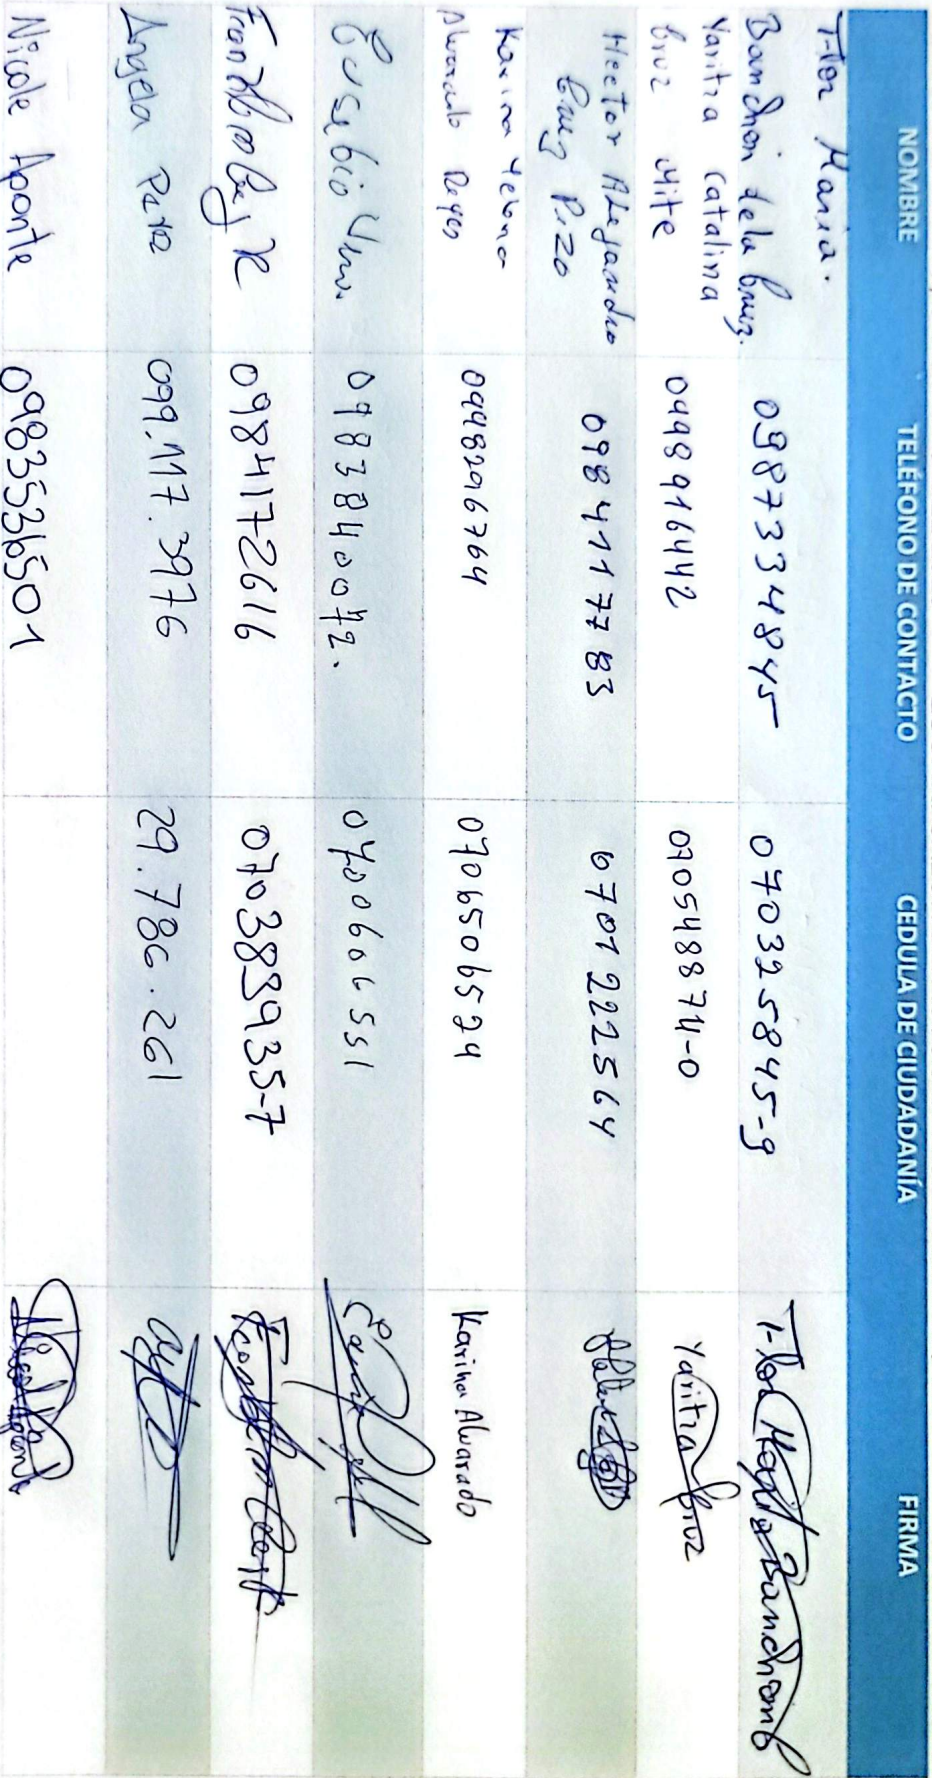 NOMBRE TELÉFONO DE CONTACTO CEDULA DE CIUDADANÍA FIRMA
Flor María.
Banchón dela Cruz. 0987334845 070325845-9 Flor María Banchón
Yaritza Catalina
Cruz Mite 0989916442 070548874-0 Yaritza Cruz
Hector Alejandro
Cruz Pizo 0984117783 0701222564
Karina Yelena
Alvarado Reyes 0998296764 0706506524 Karina Alvarado
Eusebio 0983840072. 0700606551
0984172616 070388935-7
Angela 099.117.3976 29.786.261
Nicole Aponte 0983536501 Nicole Aponte